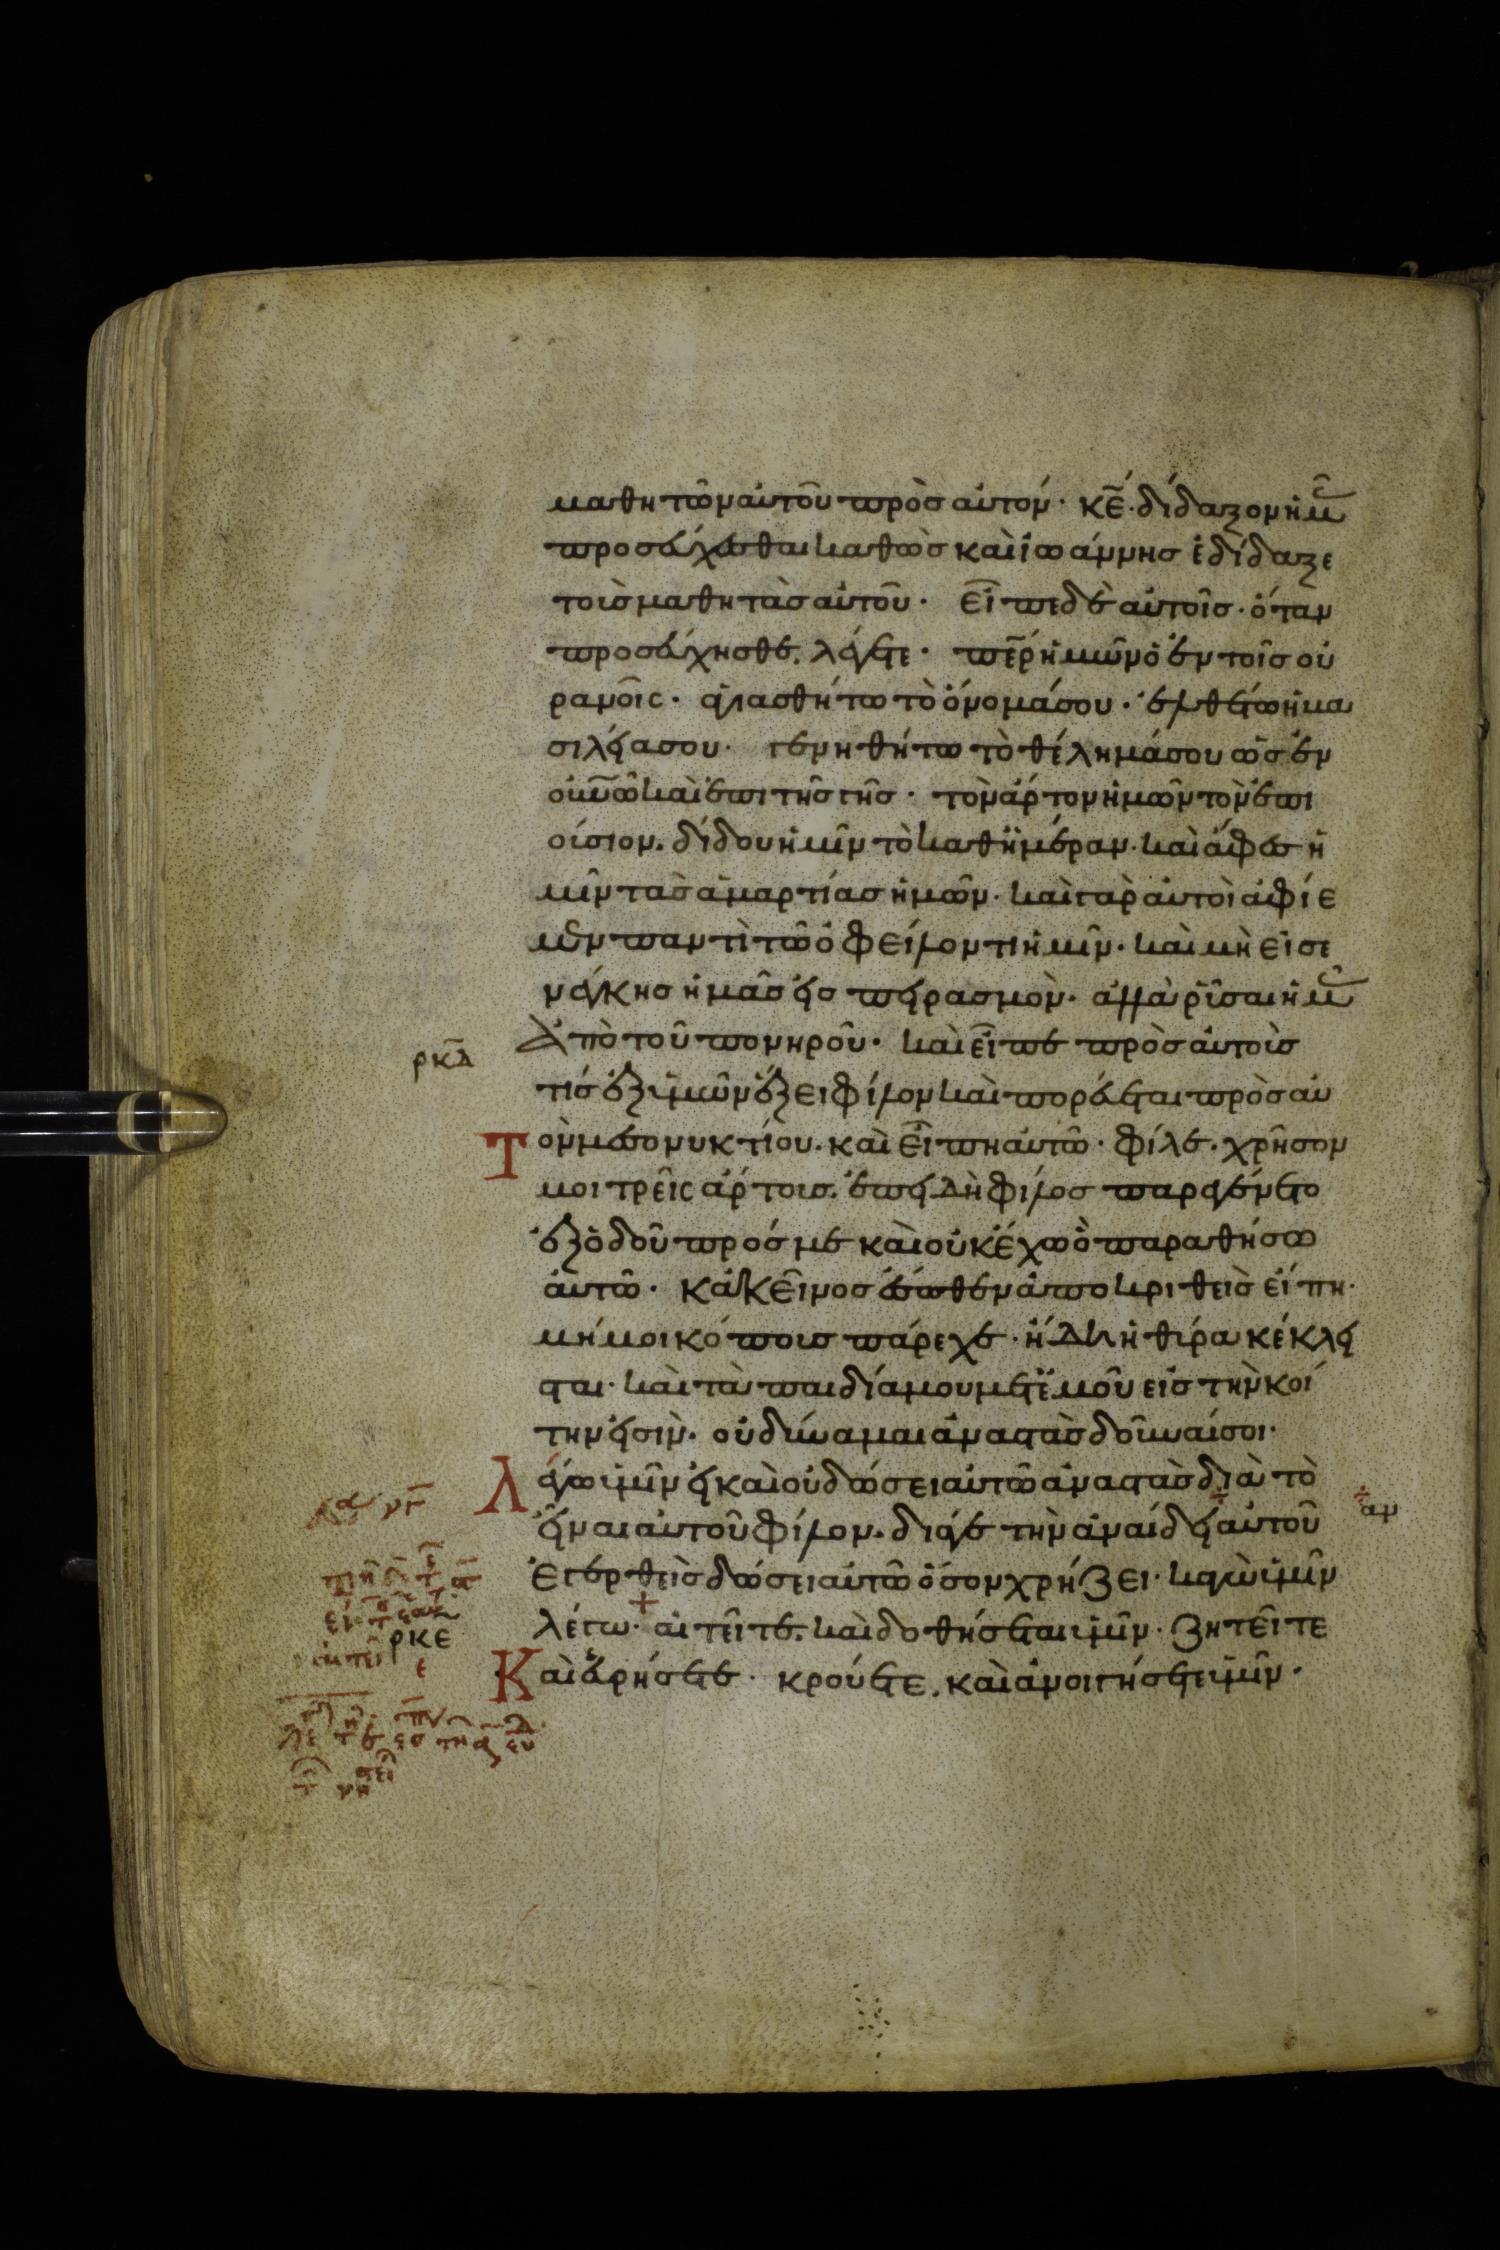 μαθητῶν αὐτοῦ πρὸς αὐτόν· κ̅ε̅· δίδαξον ἡμᾶς
προσεύχεσθαι καθὼς καὶ ἰωάννης ἐδίδαξε
τοὺς μαθητὰς αὐτοῦ· εἶπε δὲ αὐτοῖς· ὅταν
προσεύχησθε, λέγετε· π̅ε̅ρ ἡμῶν ὁ ἐν τοῖς οὐ
ρανοῖς· ἁγιασθήτω τὸ ὄνομά σου· ἐλθέτω ἡ βα
σιλεία σου· γενηθήτω τὸ θέλημά σου ὡς ἐν
ου̅ν̅ω̅ καὶ ἐπι τῆς γῆς· τὸν ἄρτον ἡμῶν τὸν ἐπι
ούσιον. δίδου ἡμῖν τὸ καθ' ἡμέραν· καὶ ἄφες ἡ
μῖν τὰς ἁμαρτίας ἡμῶν· καὶ γὰρ αὐτοὶ ἀφίε
μεν παντὶ τῶ ὀφείλοντι ἡμῖν· καὶ μὴ εἰσε
νέγκης ἡμᾶς εἰς πειρασμὸν· ἀλλὰ ῥῦσαι ἡμᾶς
ἀπὸ τοῦ πονηροῦ· καὶ εἶπε πρὸς αὐτοὺς
ρκδ
τίς ἐξ ὑμῶν ἕξει φίλον καὶ πορεύεται πρὸς αὐ
τὸν μεσονυκτίου. καὶ εἴπη αὐτῶ· φίλε. χρῆσόν
μοι τρεῖς ἄρτους. ἐπειδὴ φίλος παρεγένετο
ἐξ ὁδοῦ πρός με καὶ οὐκ ἔχω ὃ παραθήσω
αὐτῶ· κἀκεῖνος ἔσωθεν ἀποκριθεὶς εἴπη·
μή μοι κόπους πάρεχε· ἤδη ἡ θύρα κέκλει
σται· καὶ τὰ παιδία μου μετ' ἐμοῦ εἰς τὴν κοί
την εἰσίν. οὐ δύναμαι ἀναστὰς δοῦναί σοι·
λέγω ὑμῖν εἰ καὶ οὐ δώσει αὐτῶ ἀναστὰς διὰ τὸ
εἶναι αὐτοῦ φίλον. διά γε τὴν ἀναίδειαν αὐτοῦ
ἐγερθεὶς δώσει αὐτῶ ὅσον χρήζει· κἀγὼ ὑμῖν
λέγω· αἰτεῖτε. καὶ δοθήσεται ὑμῖν· ζητεῖτε
ρκε
ε
καὶ εὑρήσετε· κρούετε. καὶ ἀνοιγήσεται ὑμῖν·